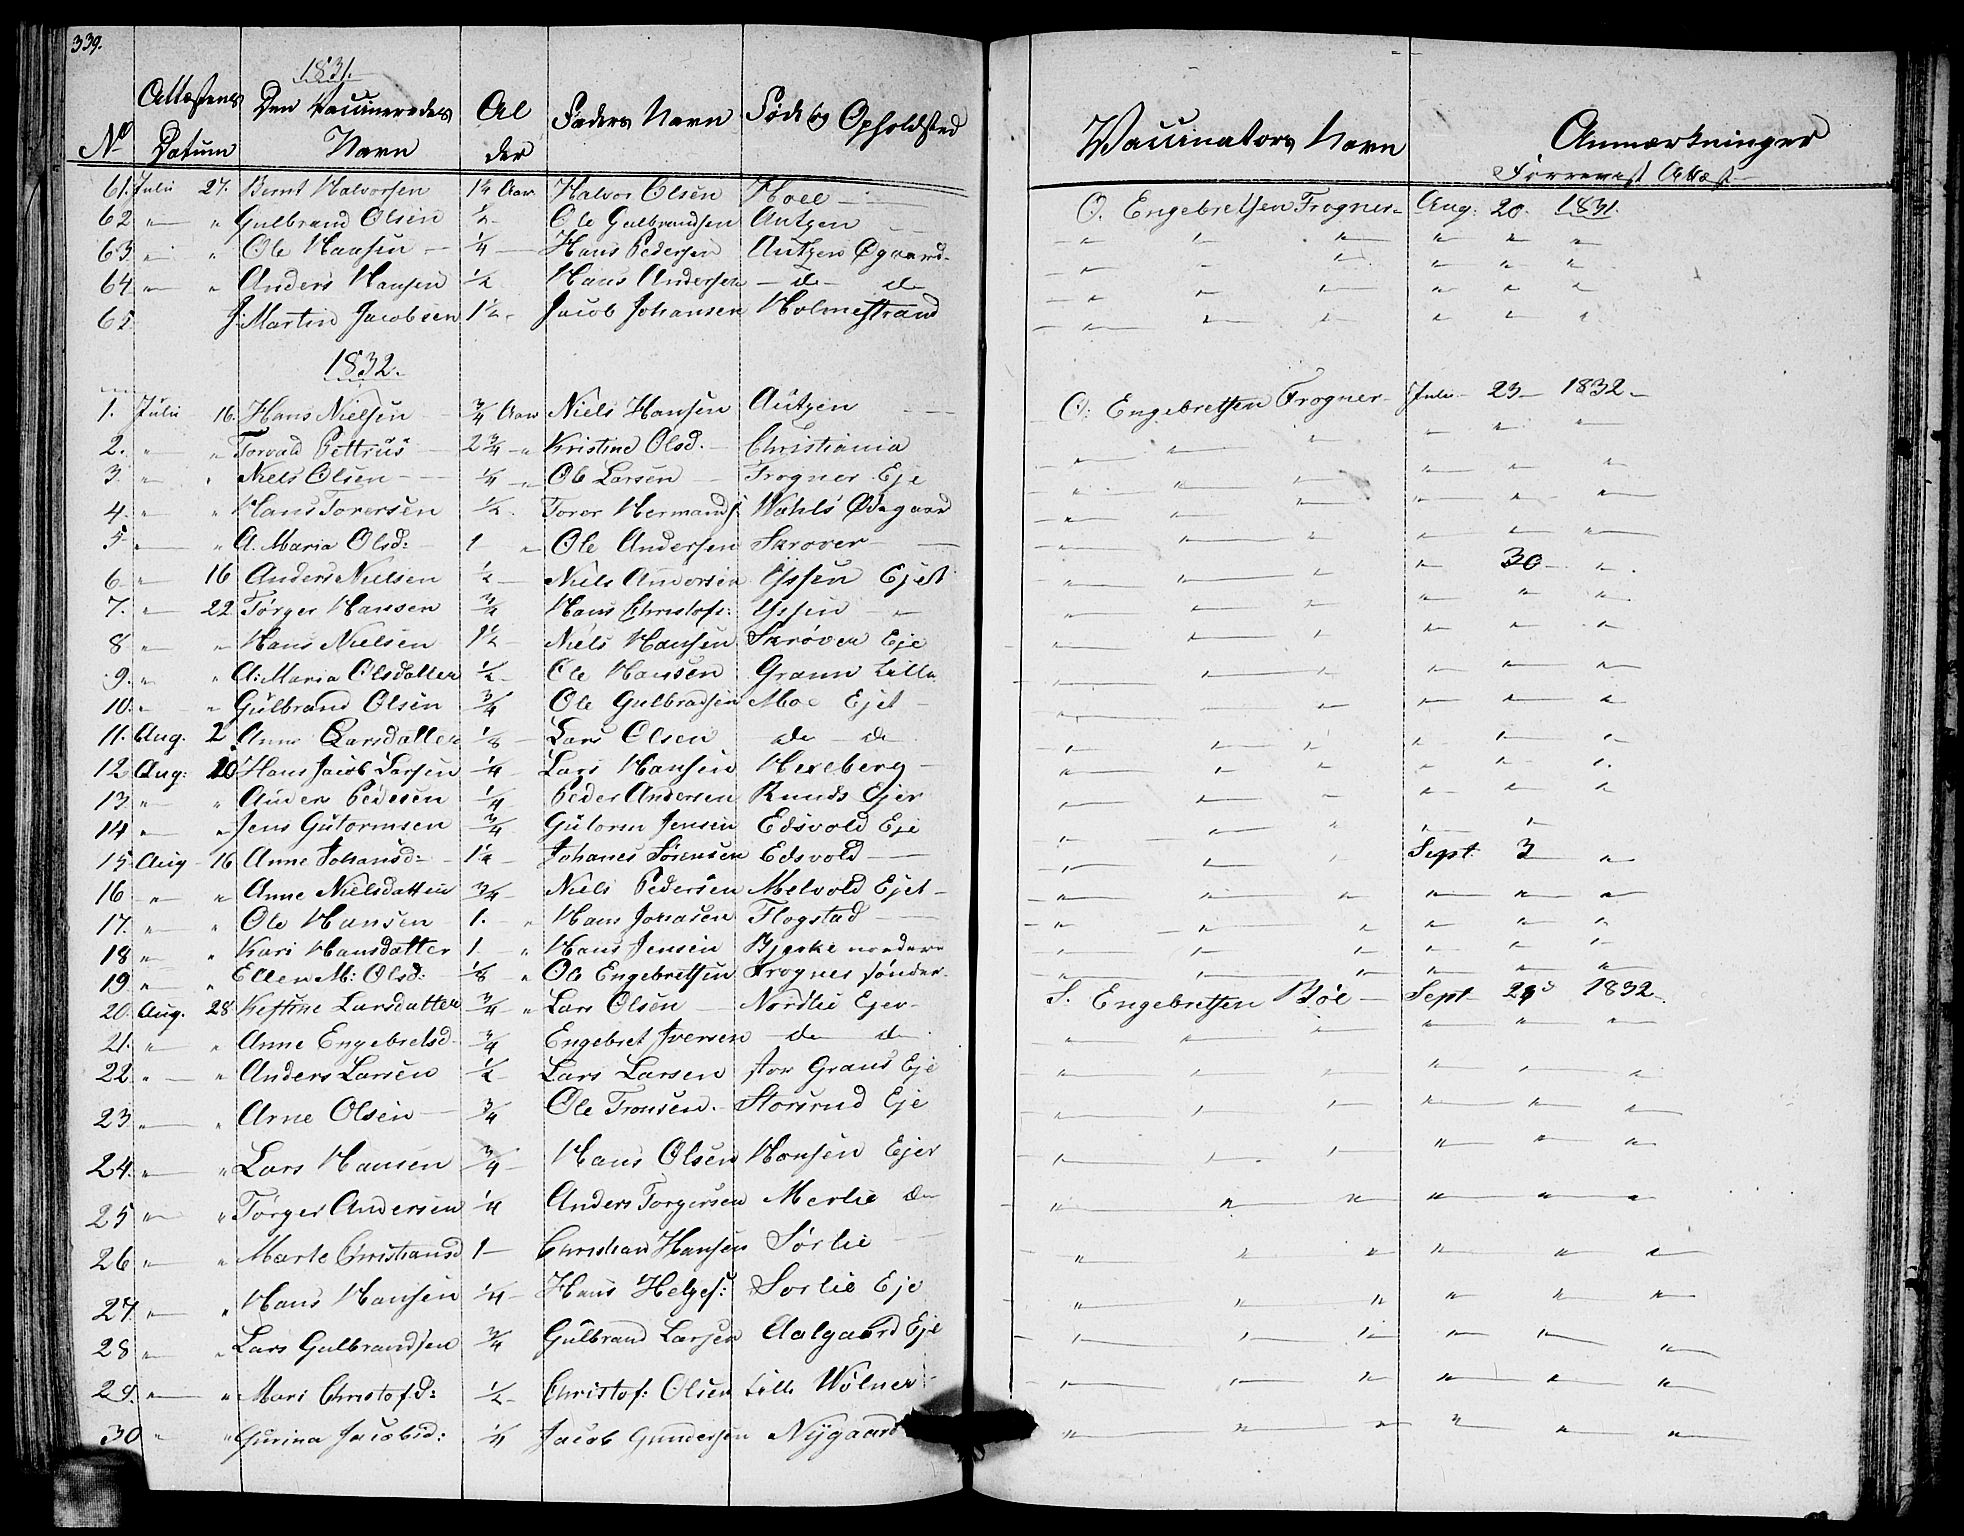 339.
1831.
No Attestens Datum Den Vaccineredes Navn Alder Faders Navn Føde og Opholdsted Vaccinators Navn Anmærkninger
Forrevist Attest
61. Julii 27. Bernt Halvorsen 1¼ Aar Halvor Olsen Hoel O. Engebretsen Frogner Aug: 20. 1831.
62 " " Gulbrand Olsen ½ Ole Gulbrandsen Autzen " " " " " "
63 " " Ole Hansen ¼ Hans Pedersen Autzen Øgaard " " " " " "
64 " " Anders Hansen ½ Hans Andersen de de " " " " " "
65 J: Martin Jacobsen 1½ Jacob Johansen Holmestrand " " " " " "
1832.
1. Julii 16. Hans Nielsen ¾ Aar Niels Hansen Autzen O: Engebretsen Frogner Julii 23 1832
2. " " Torvald Pettrus 2¾ " Kristine Olsd. Christiania " " " " " "
3. " " Niels Olsen ¼ " Ole Larsen Frogner Eje " " " " " "
4. " " Hans Torersen ½ Torer Hermands: Wahls Ødegaard " " " " " "
5 " " A. Maria Olsd: 1 " Ole Andersen Skrover " " " " " "
6 " 16 Anders Nielsen ½ Niels Andersen Ejet " " " " 30 "
7. " 22 Tørger Hansen ¾ Hans Christofs: " " " " " " "
8 " " Hans Nielsen 1½ Niels Hansen Skrøven Eje " " " " " "
9. " " A: Maria Olsdatter ½ Ole Hansen Grann Lille " " " " " "
10. " " Gulbrand Olsen ¾ Ole Gulbradsen Moe Ejet " " " " " "
11. Aug. 2. Anne Larsdatter ⅛ Lars Olsen de de " " " " " "
12 Aug: 10 Hans Jacob Larsen ¼ Lars Hansen Hexeberg " " " " " "
13 " " Anders Pedesen ¼ Peder Andersen Runds Ejer " " " " " "
14 " " Jens Gutormsen ¾ Gutorm Jensen Edsvold Eje " " " " "
15 Aug 16 Anne Johansd: 1¼ Johanes Sørensen Edsvold " " " Sept. 3 "
16 " " Anne Nielsdatter ¾ Niels Pedersen Melvold Ejet " " " " " "
17. " " Ole Hansen 1. " Hans Jonasen Flogstad " " " " " "
18 " " Kari Hansdatter 1 " Hans Jensen Bjerke nordere " " " " " "
19 " " Ellen M: Olsd: ⅛ " Ole Engebretsen Frogner sønder " " " " " "
20. Aug. 28 Kestine Larsdatter ¾ " Lars Olsen Nordlie Ejer S. Engebretsen Bøe Sept 1832
21. " " Anne Engebretsd. ¾ Engebret Iversen de de " " " " " "
22 " " Anders Larsen ½ Lars Larsen stor Grans Eje " " " " " "
23 " " Arne Olsen ¾ Ole Tronsen Storsrud Eje " " " " " "
24. " " Lars Hansen ¾ Hans Olsen Hansen Ejer " " " " " "
25 " " Tørger Andersen ¼ Anders Torgersen Merlie de " " " " " "
26 " " Marte Christiansd 1 Christian Hansen Sørlie " " " " " "
27 " " Hans Hansen ¼ Hans Helges: Sorlie Eje " " " " " "
28 " " Lars Gulbrandsen ¾ Gulbrand Larsen Aalgaard Eje " " " " " "
29. " " Mari Christofd: ½ Christof: Olsen Lille Wølner " " " " " "
30 " " Gurina Jacobsd: ¼ Jacob Gundersen Nygaard " " " " " "